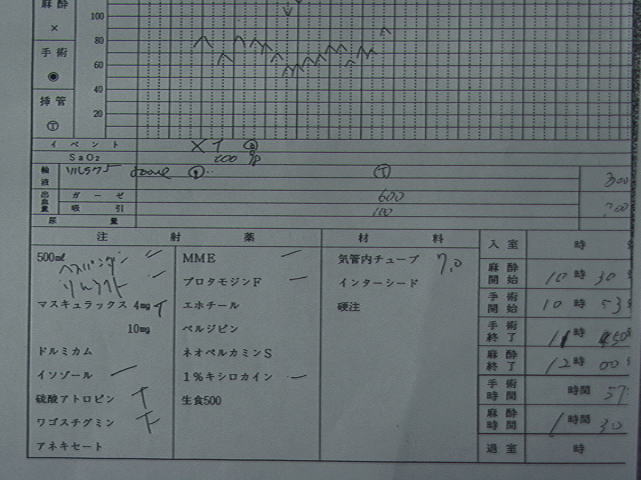 麻酔
×
手術
◉
挿管
Ⓣ
100
80
60
40
20
イベント
X T
SaO2
100 %
輸液
Ⓣ
300
出血量
ガーゼ
600
吸引
100
700
尿量
注射薬
材料
500ml
ヘスパンダー
マスキュラックス 4mg T
10mg
ドルミカム
イソゾール
硫酸アトロピン T
ワゴスチグミン T
アネキセート
MME
プロタモジンF
エホチール
ペルジピン
ネオペルカミンS
1%キシロカイン
生食500
気管内チューブ 7.0
インターシード
硬注
入室 時
麻酔開始 10時30
手術開始 10時53
手術終了 11 50
麻酔終了 12時00
手術時間 時間 57
麻酔時間 1時間30
退室 時